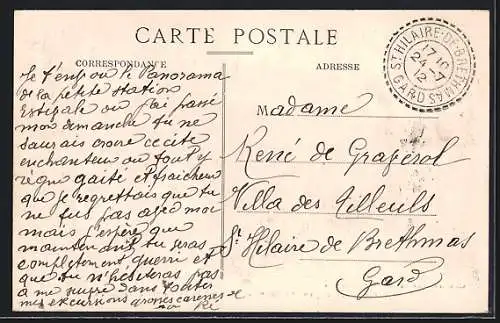 CARTE POSTALE
CORRESPONDANCE
ADRESSE
ST HILAIRE-DE-BRETHMAS
17 10
24 -7
12
GARD
Je t'envoie le Panorama
de la petite station
Estivale ou j'ai passé
mon dimanche tu ne
saurais croire ce site
enchanteur ou tout y
règne gaité et fraicheur
que je regrettais que tu
ne fus pas avec moi
mais j'espère que
maintenant tu seras
complètement guerri et
que tu n'hésiteras pas
a me suivre dans toutes
mes excursions grosses caresses
Madame
René de Graferol
Villa des Tilleuls
St Hilaire de Brethmas
Gard